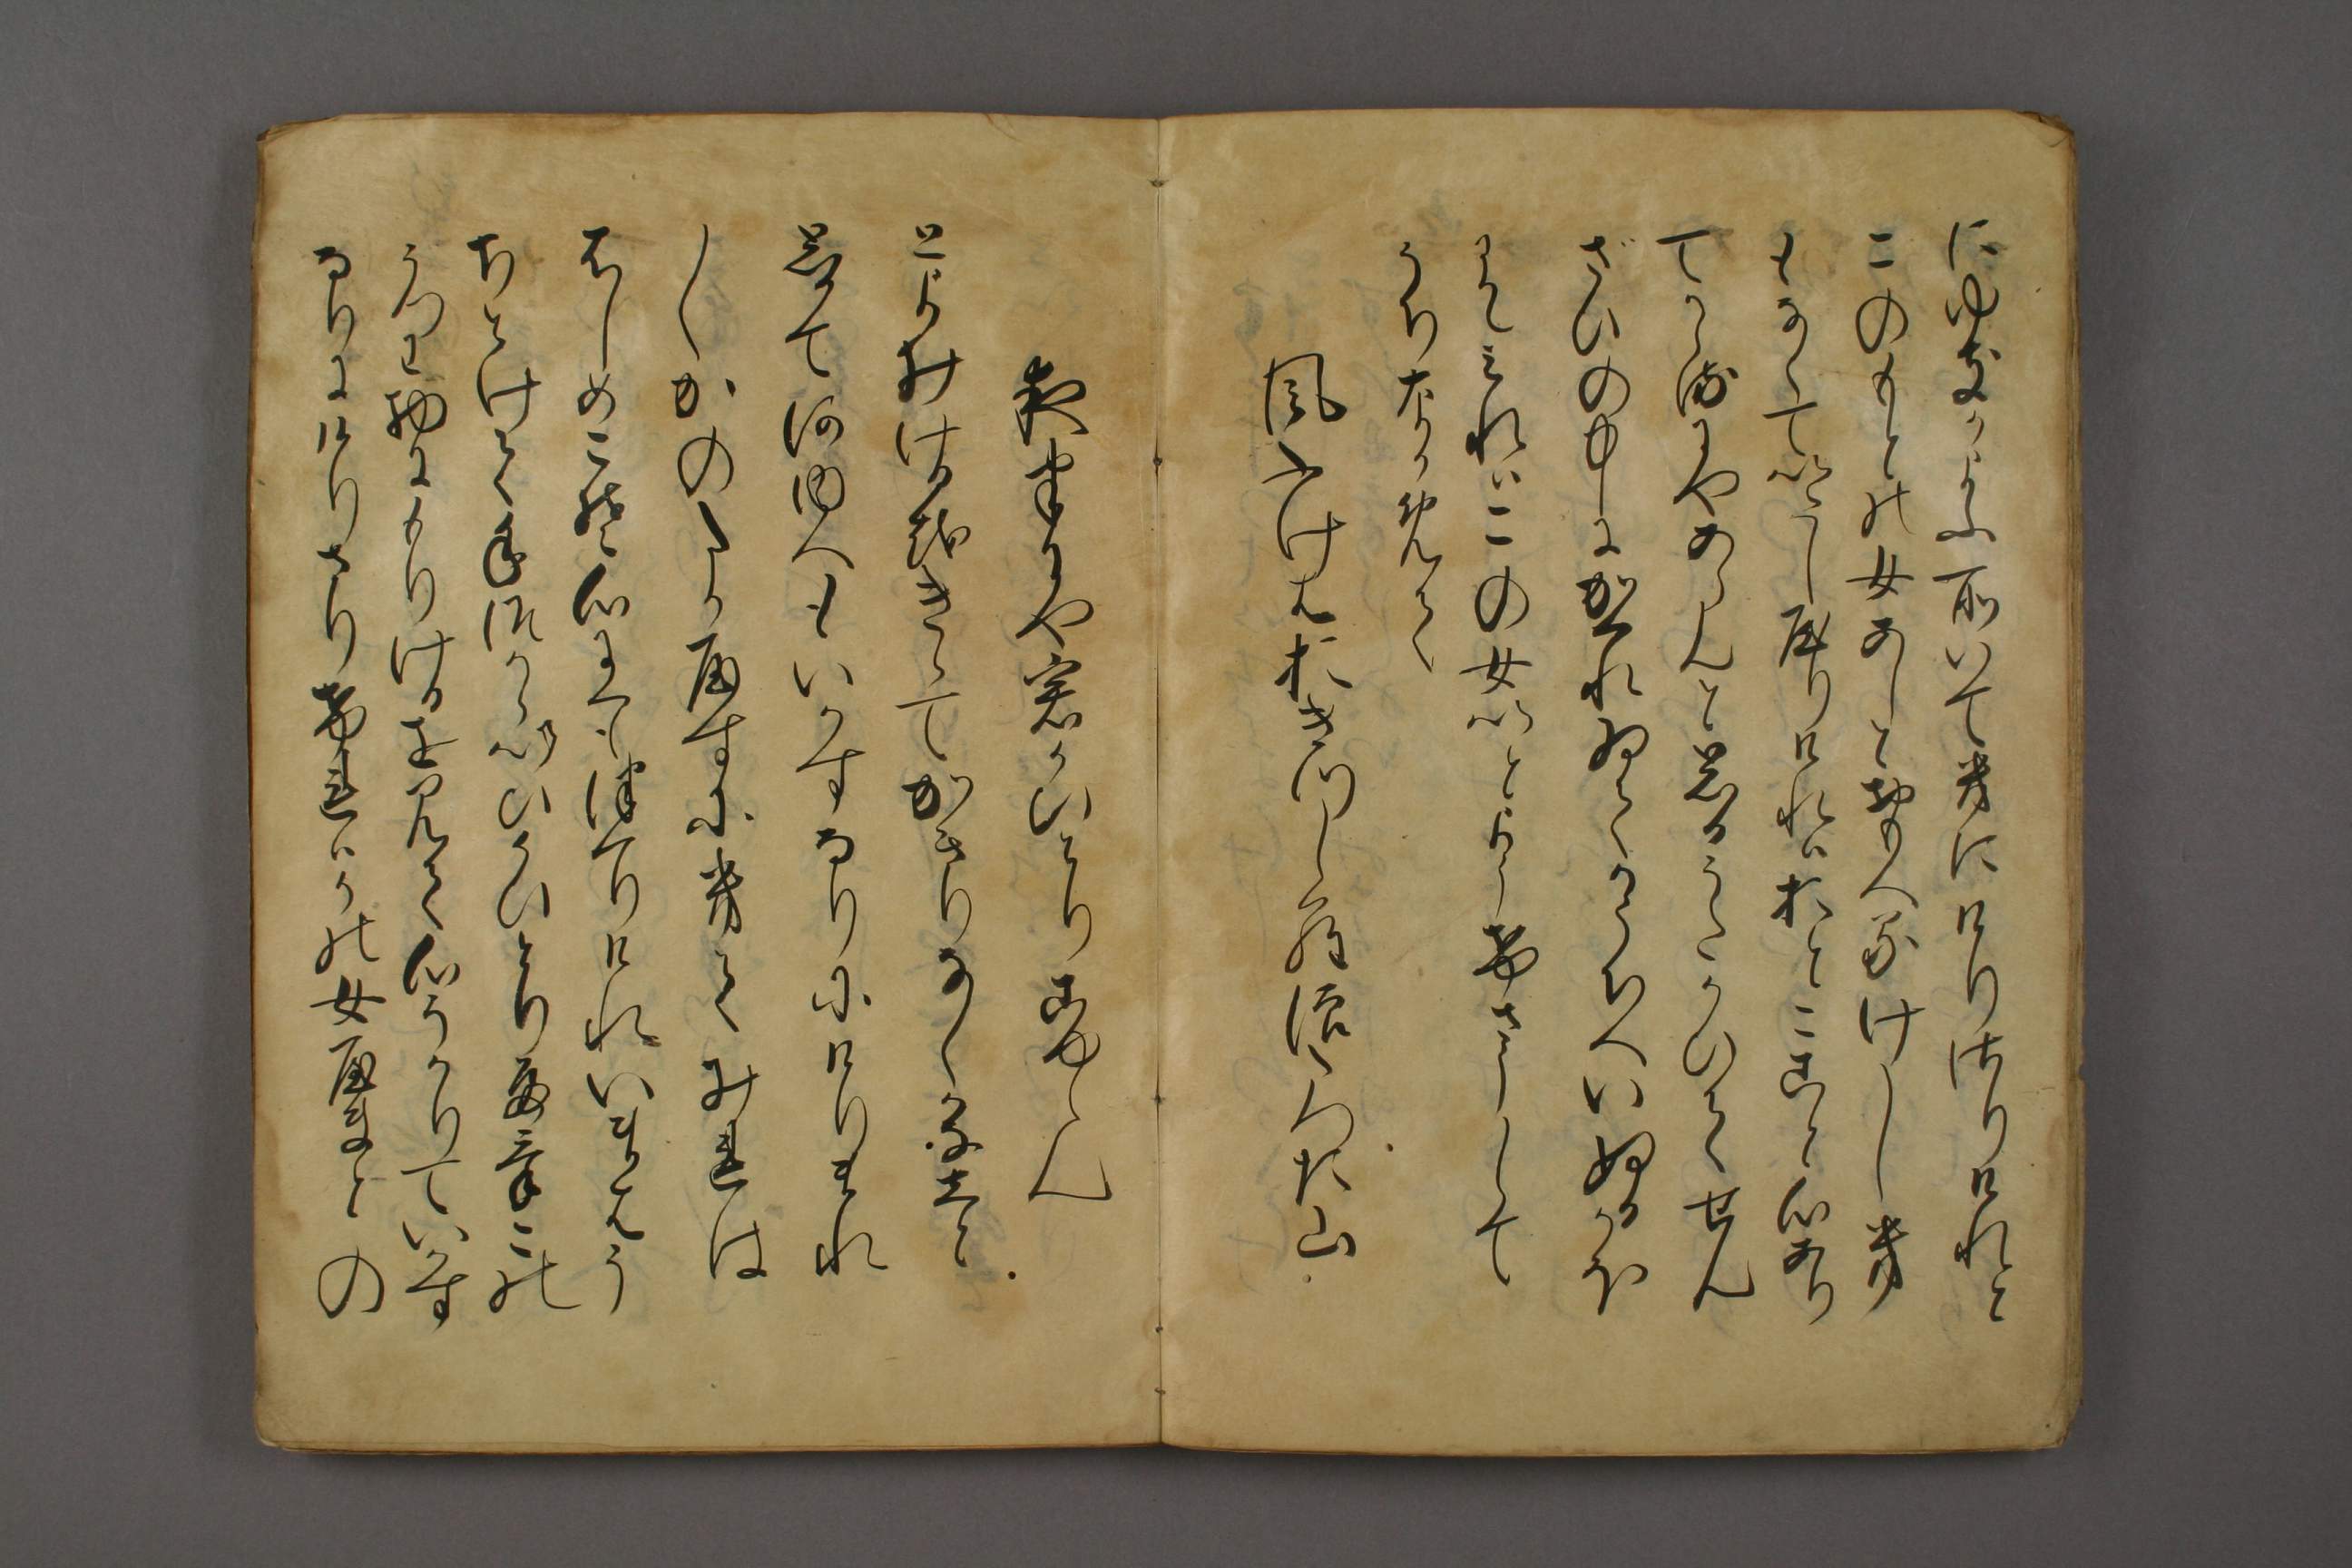 にゆきかよふ所いてきにけりさりけれと
このもとの女あしとおもへるけしき
もなくていたしやりけれはおとここと心あり
てかゝるにやあらんと思うたかひてせん
さいの中にかくれゐてかうちへいぬるかほ
にてみれはこの女いとようけさうして
うちなかめて
風ふけはおきつしら浪たつた山
夜半にや君かひとりこゆらん
とよみけるをきゝてかきりなくかなしと
思てかうちへもいかすなりにけりまれ
〳〵かのたかやすにきてみれは
はしめこそ心にくゝもつくりけれいまはう
ちとけて手つからいひかいとりてけこの
うつは物にもりけるを見て心うかりていかす
なりにけりさりけれはかの女やまとの